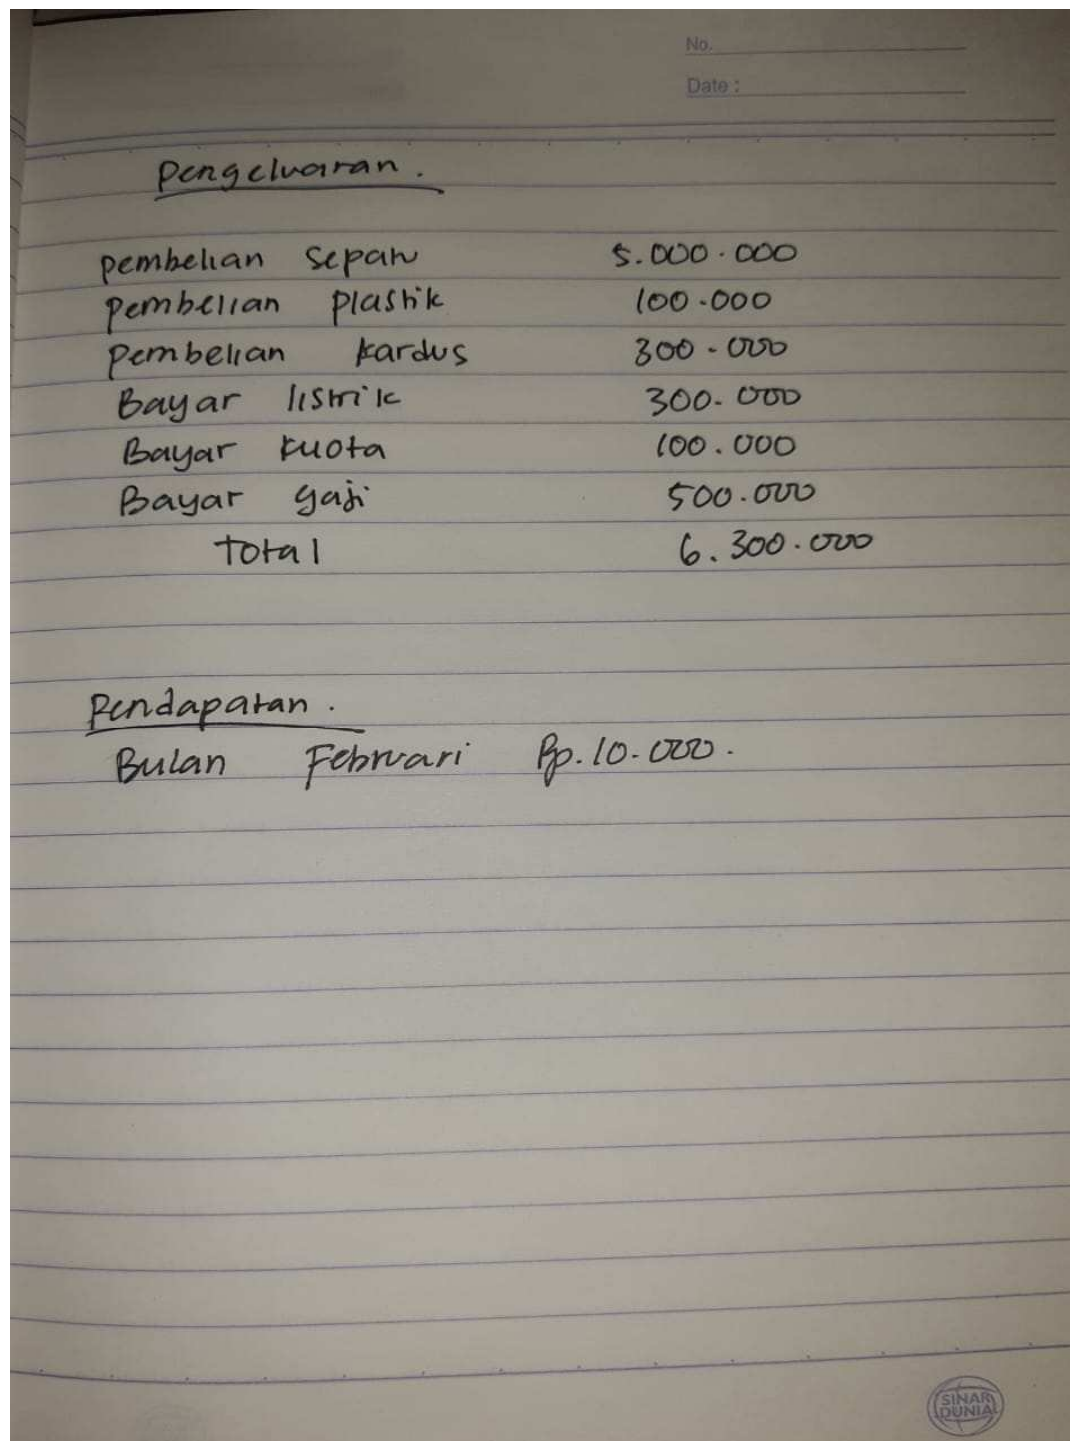 No.
Date :
Pengeluaran.
pembelian sepatu 5.000.000
pembelian plastik 100.000
pembelian kardus 300.000
Bayar listrik 300.000
Bayar kuota 100.000
Bayar gaji 500.000
Total 6.300.000
Pendapatan.
Bulan Februari Rp.10.000.
SINAR
DUNIA